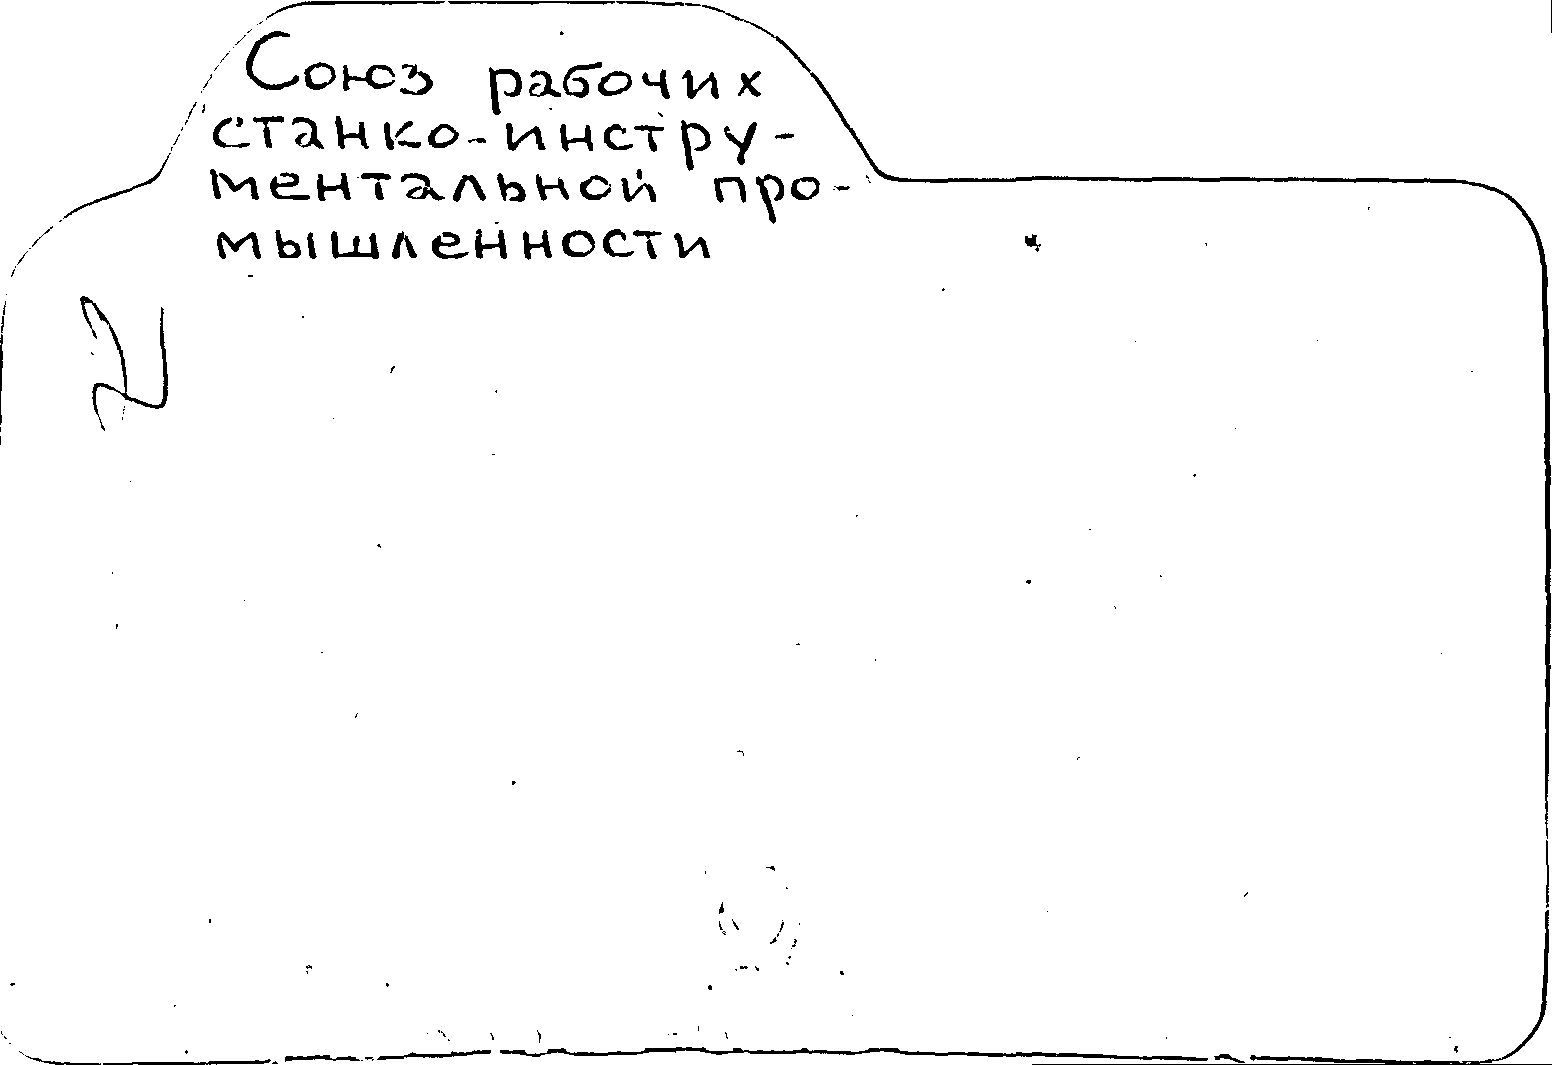 Союз рабочих
станко-инстру-
ментальной про-
мышленности